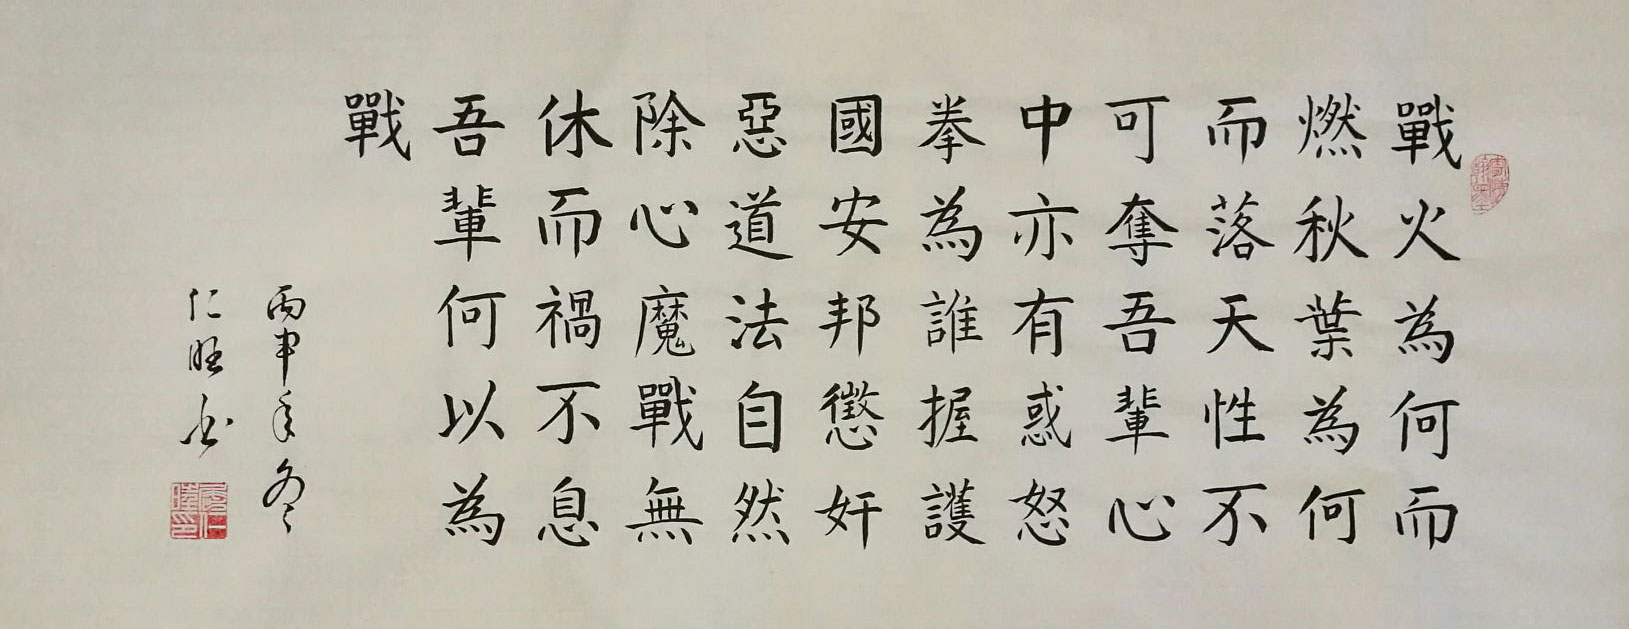 戰火為何而
燃秋葉為何
而落天性不
可奪吾輩心
中亦有惑怒
拳為誰握護
國安邦懲奸
惡道法自然
除心魔戰無
休而禍不息
吾輩何以為
戰
丙申年冬
仁旺书